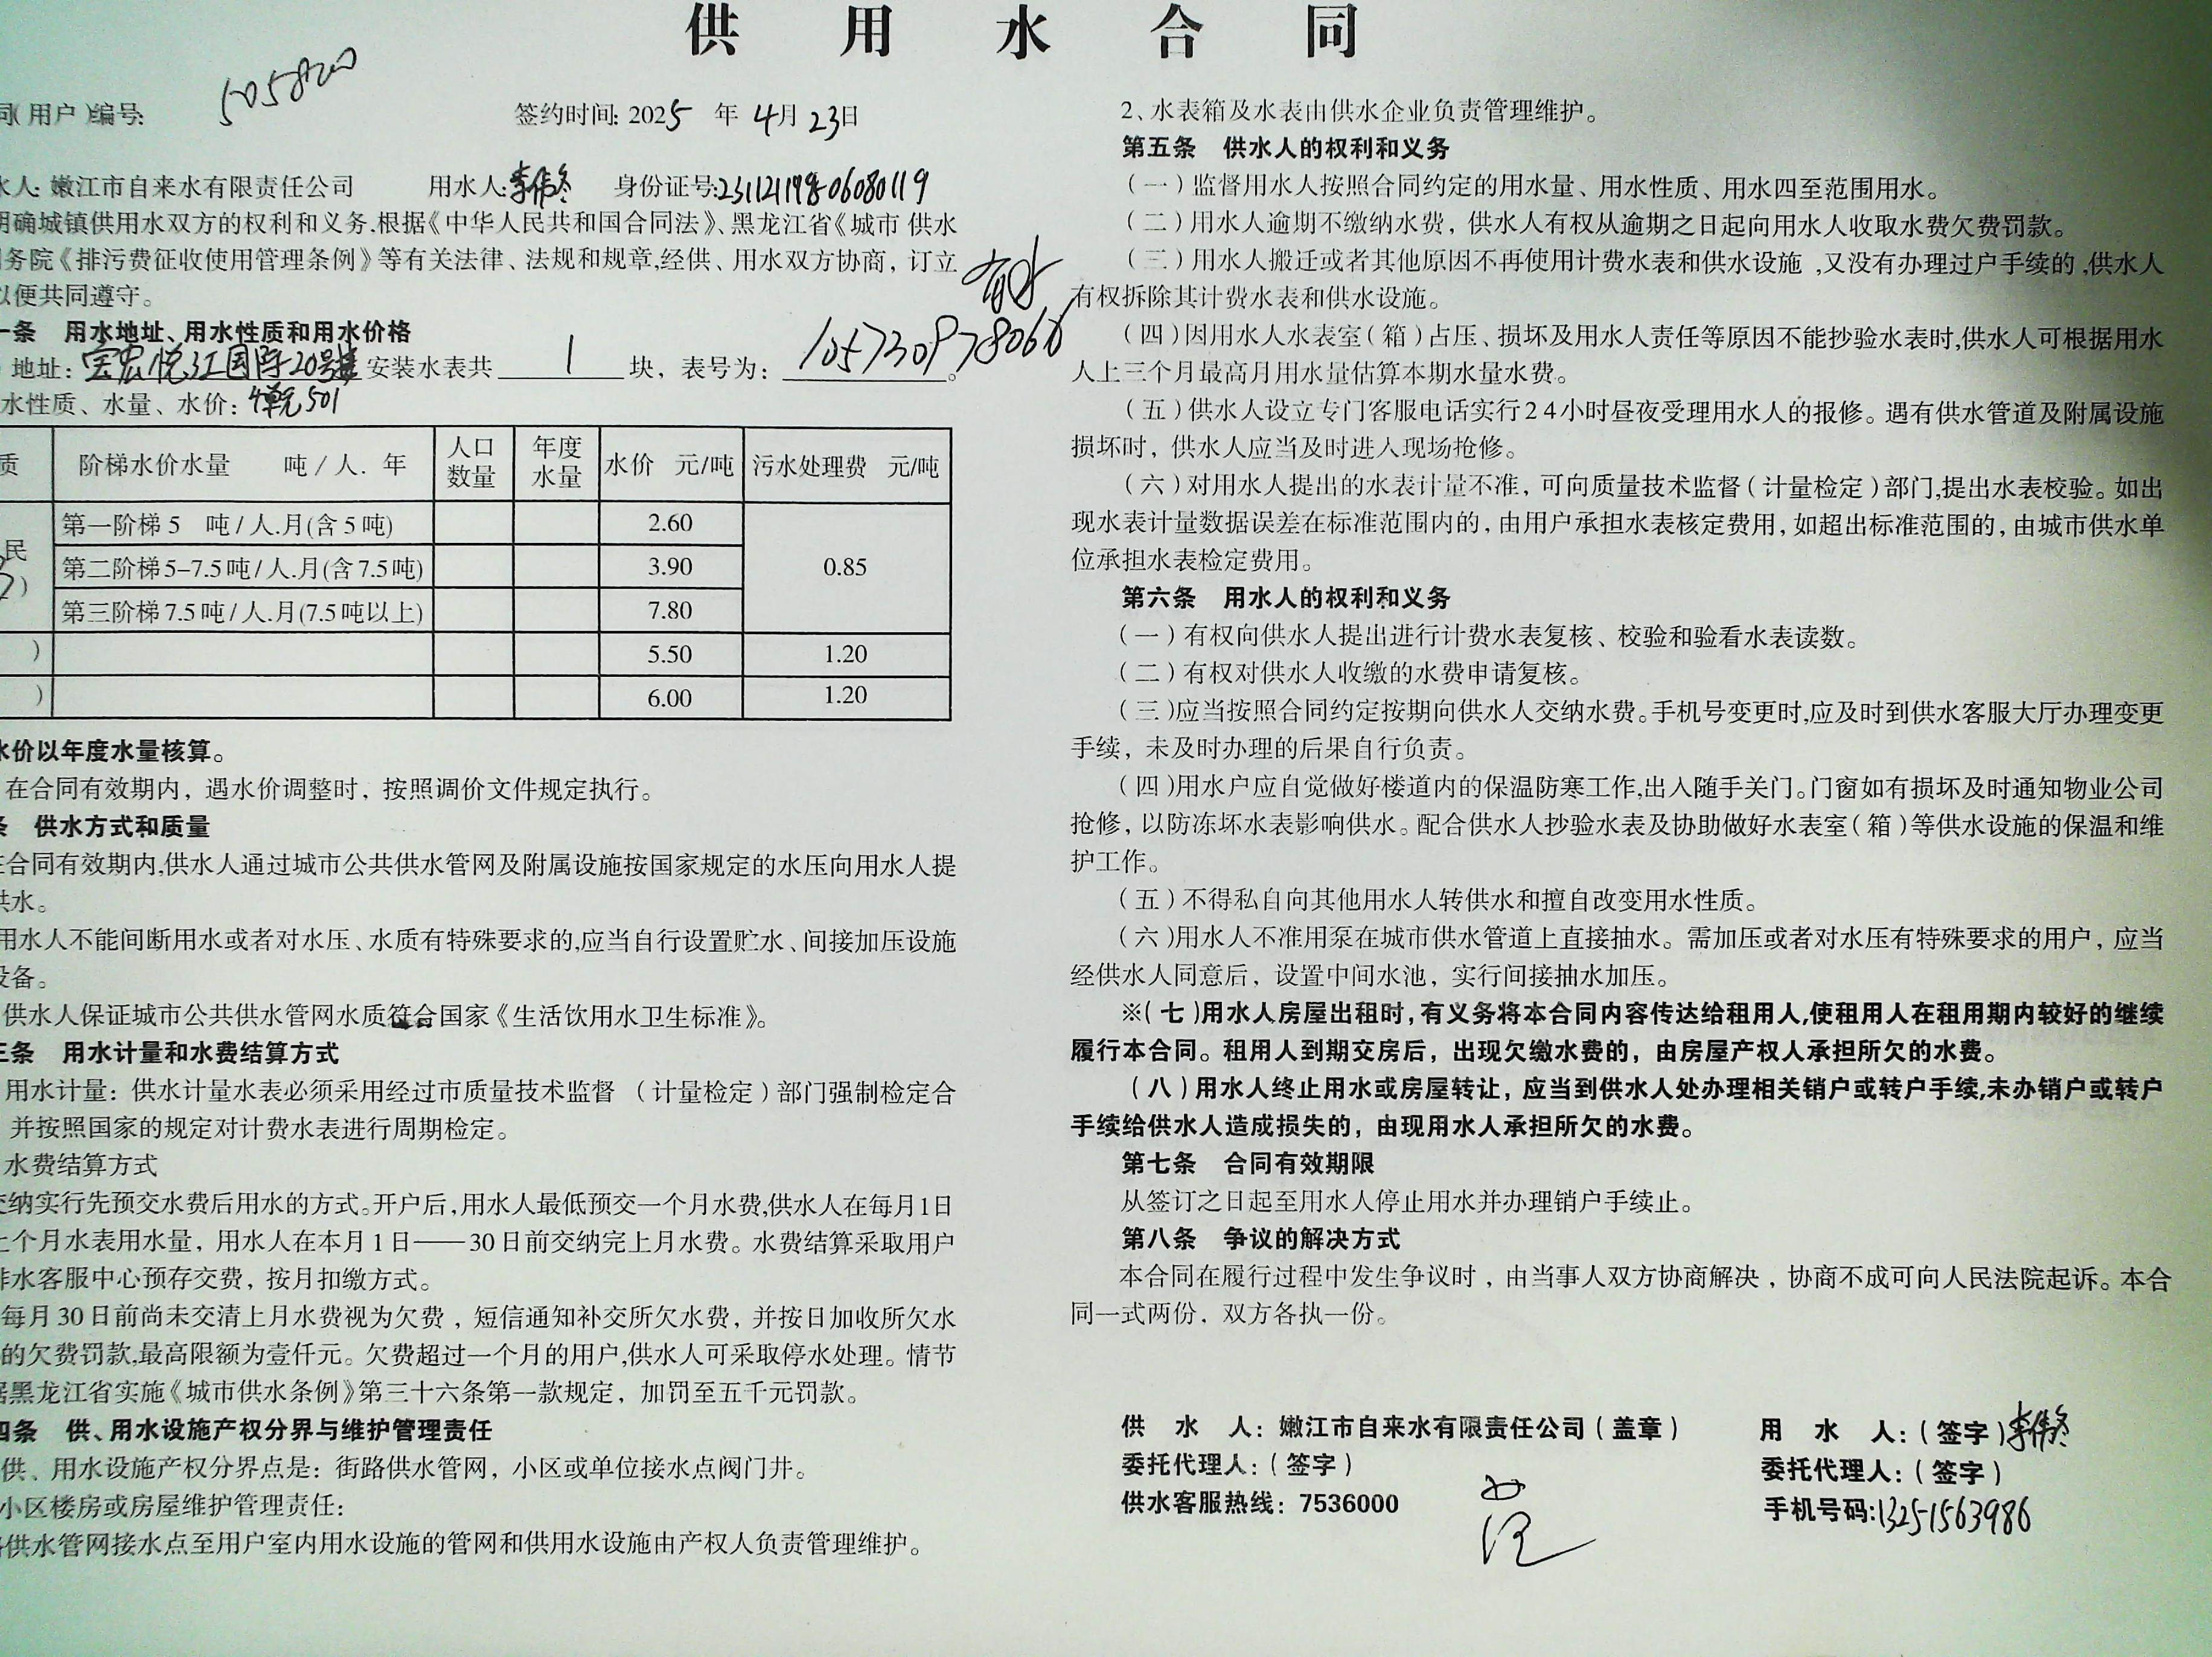 供 用 水 合 同
同(用户)编号: 505820
签约时间: 2025 年 4月 23日
水人: 嫩江市自来水有限责任公司 用水人: 身份证号:
明确城镇供用水双方的权利和义务.根据《中华人民共和国合同法》、黑龙江省《城市 供水
务院《排污费征收使用管理条例》等有关法律、法规和规章,经供、用水双方协商，订立
以便共同遵守。
一条 用水地址、用水性质和用水价格
地址: 宝宏悦江国际20号楼 安装水表共 1 块，表号为:
水性质、水量、水价: 501
质 阶梯水价水量 吨/人.年 人口数量 年度水量 水价 元/吨 污水处理费 元/吨
民 第一阶梯 5 吨/人.月(含 5 吨) 2.60 0.85
第二阶梯 5–7.5 吨/人.月(含 7.5 吨) 3.90
第三阶梯 7.5 吨/人.月(7.5 吨以上) 7.80
) 5.50 1.20
) 6.00 1.20
水价以年度水量核算。
在合同有效期内，遇水价调整时，按照调价文件规定执行。
条 供水方式和质量
在合同有效期内,供水人通过城市公共供水管网及附属设施按国家规定的水压向用水人提
供水。
用水人不能间断用水或者对水压、水质有特殊要求的,应当自行设置贮水、间接加压设施
设备。
供水人保证城市公共供水管网水质符合国家《生活饮用水卫生标准》。
三条 用水计量和水费结算方式
用水计量：供水计量水表必须采用经过市质量技术监督 （计量检定）部门强制检定合
并按照国家的规定对计费水表进行周期检定。
水费结算方式
交纳实行先预交水费后用水的方式。开户后,用水人最低预交一个月水费,供水人在每月1日
上个月水表用水量，用水人在本月 1 日——30 日前交纳完上月水费。水费结算采取用户
排水客服中心预存交费，按月扣缴方式。
每月 30 日前尚未交清上月水费视为欠费，短信通知补交所欠水费，并按日加收所欠水
的欠费罚款,最高限额为壹仟元。欠费超过一个月的用户,供水人可采取停水处理。情节
据黑龙江省实施《城市供水条例》第三十六条第一款规定，加罚至五千元罚款。
四条 供、用水设施产权分界与维护管理责任
供、用水设施产权分界点是：街路供水管网，小区或单位接水点阀门井。
小区楼房或房屋维护管理责任:
供水管网接水点至用户室内用水设施的管网和供用水设施由产权人负责管理维护。
2、水表箱及水表由供水企业负责管理维护。
第五条 供水人的权利和义务
（一）监督用水人按照合同约定的用水量、用水性质、用水四至范围用水。
（二）用水人逾期不缴纳水费，供水人有权从逾期之日起向用水人收取水费欠费罚款。
（三）用水人搬迁或者其他原因不再使用计费水表和供水设施,又没有办理过户手续的,供水人
有权拆除其计费水表和供水设施。
（四）因用水人水表室（箱）占压、损坏及用水人责任等原因不能抄验水表时,供水人可根据用水
人上三个月最高月用水量估算本期水量水费。
（五）供水人设立专门客服电话实行24小时昼夜受理用水人的报修。遇有供水管道及附属设施
损坏时，供水人应当及时进入现场抢修。
（六）对用水人提出的水表计量不准，可向质量技术监督（计量检定）部门,提出水表校验。如出
现水表计量数据误差在标准范围内的，由用户承担水表核定费用，如超出标准范围的，由城市供水单
位承担水表检定费用。
第六条 用水人的权利和义务
（一）有权向供水人提出进行计费水表复核、校验和验看水表读数。
（二）有权对供水人收缴的水费申请复核。
（三）应当按照合同约定按期向供水人交纳水费。手机号变更时,应及时到供水客服大厅办理变更
手续，未及时办理的后果自行负责。
（四）用水户应自觉做好楼道内的保温防寒工作,出入随手关门。门窗如有损坏及时通知物业公司
抢修，以防冻坏水表影响供水。配合供水人抄验水表及协助做好水表室（箱）等供水设施的保温和维
护工作。
（五）不得私自向其他用水人转供水和擅自改变用水性质。
（六）用水人不准用泵在城市供水管道上直接抽水。需加压或者对水压有特殊要求的用户，应当
经供水人同意后，设置中间水池，实行间接抽水加压。
※（七）用水人房屋出租时,有义务将本合同内容传达给租用人,使租用人在租用期内较好的继续
履行本合同。租用人到期交房后，出现欠缴水费的，由房屋产权人承担所欠的水费。
（八）用水人终止用水或房屋转让，应当到供水人处办理相关销户或转户手续,未办销户或转户
手续给供水人造成损失的，由现用水人承担所欠的水费。
第七条 合同有效期限
从签订之日起至用水人停止用水并办理销户手续止。
第八条 争议的解决方式
本合同在履行过程中发生争议时，由当事人双方协商解决，协商不成可向人民法院起诉。本合
同一式两份，双方各执一份。
供 水 人：嫩江市自来水有限责任公司（盖章） 用 水 人：（签字）
委托代理人：（签字） 委托代理人：（签字）
供水客服热线：7536000 手机号码:13251563986